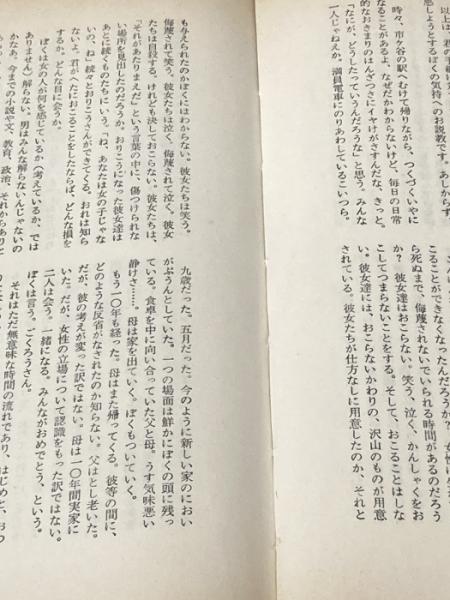 感しようとするぼくの気持へのお説教です。あしからず
時々、市ケ谷の駅へむけて帰りながら、つくづくいやに
なることがあるよ、なぜだかわからないけど、毎日の日常
的なおきまりのはんざつさにイヤけがさすんだな、きっと。
「なにが、どうしたっていうんだろうな」と思う。みんな
一人じゃねえか。満員電車にのりあわしているこいつら。
こることができなくなったんだろうか?
ら死ぬまで、侮蔑されないでいられる時間があるのだろう
か? 彼女達はおこらない。笑う、泣く、かんしゃくをお
こしてつまらないことをする。そして、おこることはしな
い。彼女達には、おこらないかわりの、沢山のものが用意
されている。彼女たちが仕方なしに用意したのか、それと
も与えられたのかぼくにはわからない。彼女たちは笑う。
侮蔑されて笑う。彼女たちは泣く。侮蔑されて泣く。彼女
たちは自殺する。けれども決しておこらない。彼女たちは、
「それがあたりまえだ」という言葉の中に、傷つけられな
い場所を見出したのだろうか。おりこうになった彼女達は
あとに続くものたちにいう。「ね、あなたは女の子じゃな
いの、ね」続々とおりこうさんができてくる。おれは知ら
ないよ。君がへたにおこることをしたならば、どんな損を
するか。どんな目に会うか。
ぼくは女の人が何を感じているか（考えているか、では
ありません）解らない。男はみんな解らないんじゃないの
かなあ。今までの小説や文、教育、政治、それからありと
九歳だった。五月だった。今のように新しい家のにおい
がぷうんとしていた。一つの場面は鮮かにぼくの頭に残っ
ている。食卓を中に向い合っていた父と母。うす気味悪い
静けさ……。母は家を出ていく。ぼくもついていく。
もう一〇年も経った。母はまた帰ってくる。彼等の間に、
どのような反省がなされたのか知らない。父はとし老いた。
だが、彼の考えが変った訳ではない。母は一〇年間実家に
いた。だが、女性の立場について認識をもった訳ではない。
二人は会う。一緒になる。みんながおめでとう、という。
ぼくは言う。ごくろうさん。
それはただ無意味な時間の流れであり、はじめと、おつ